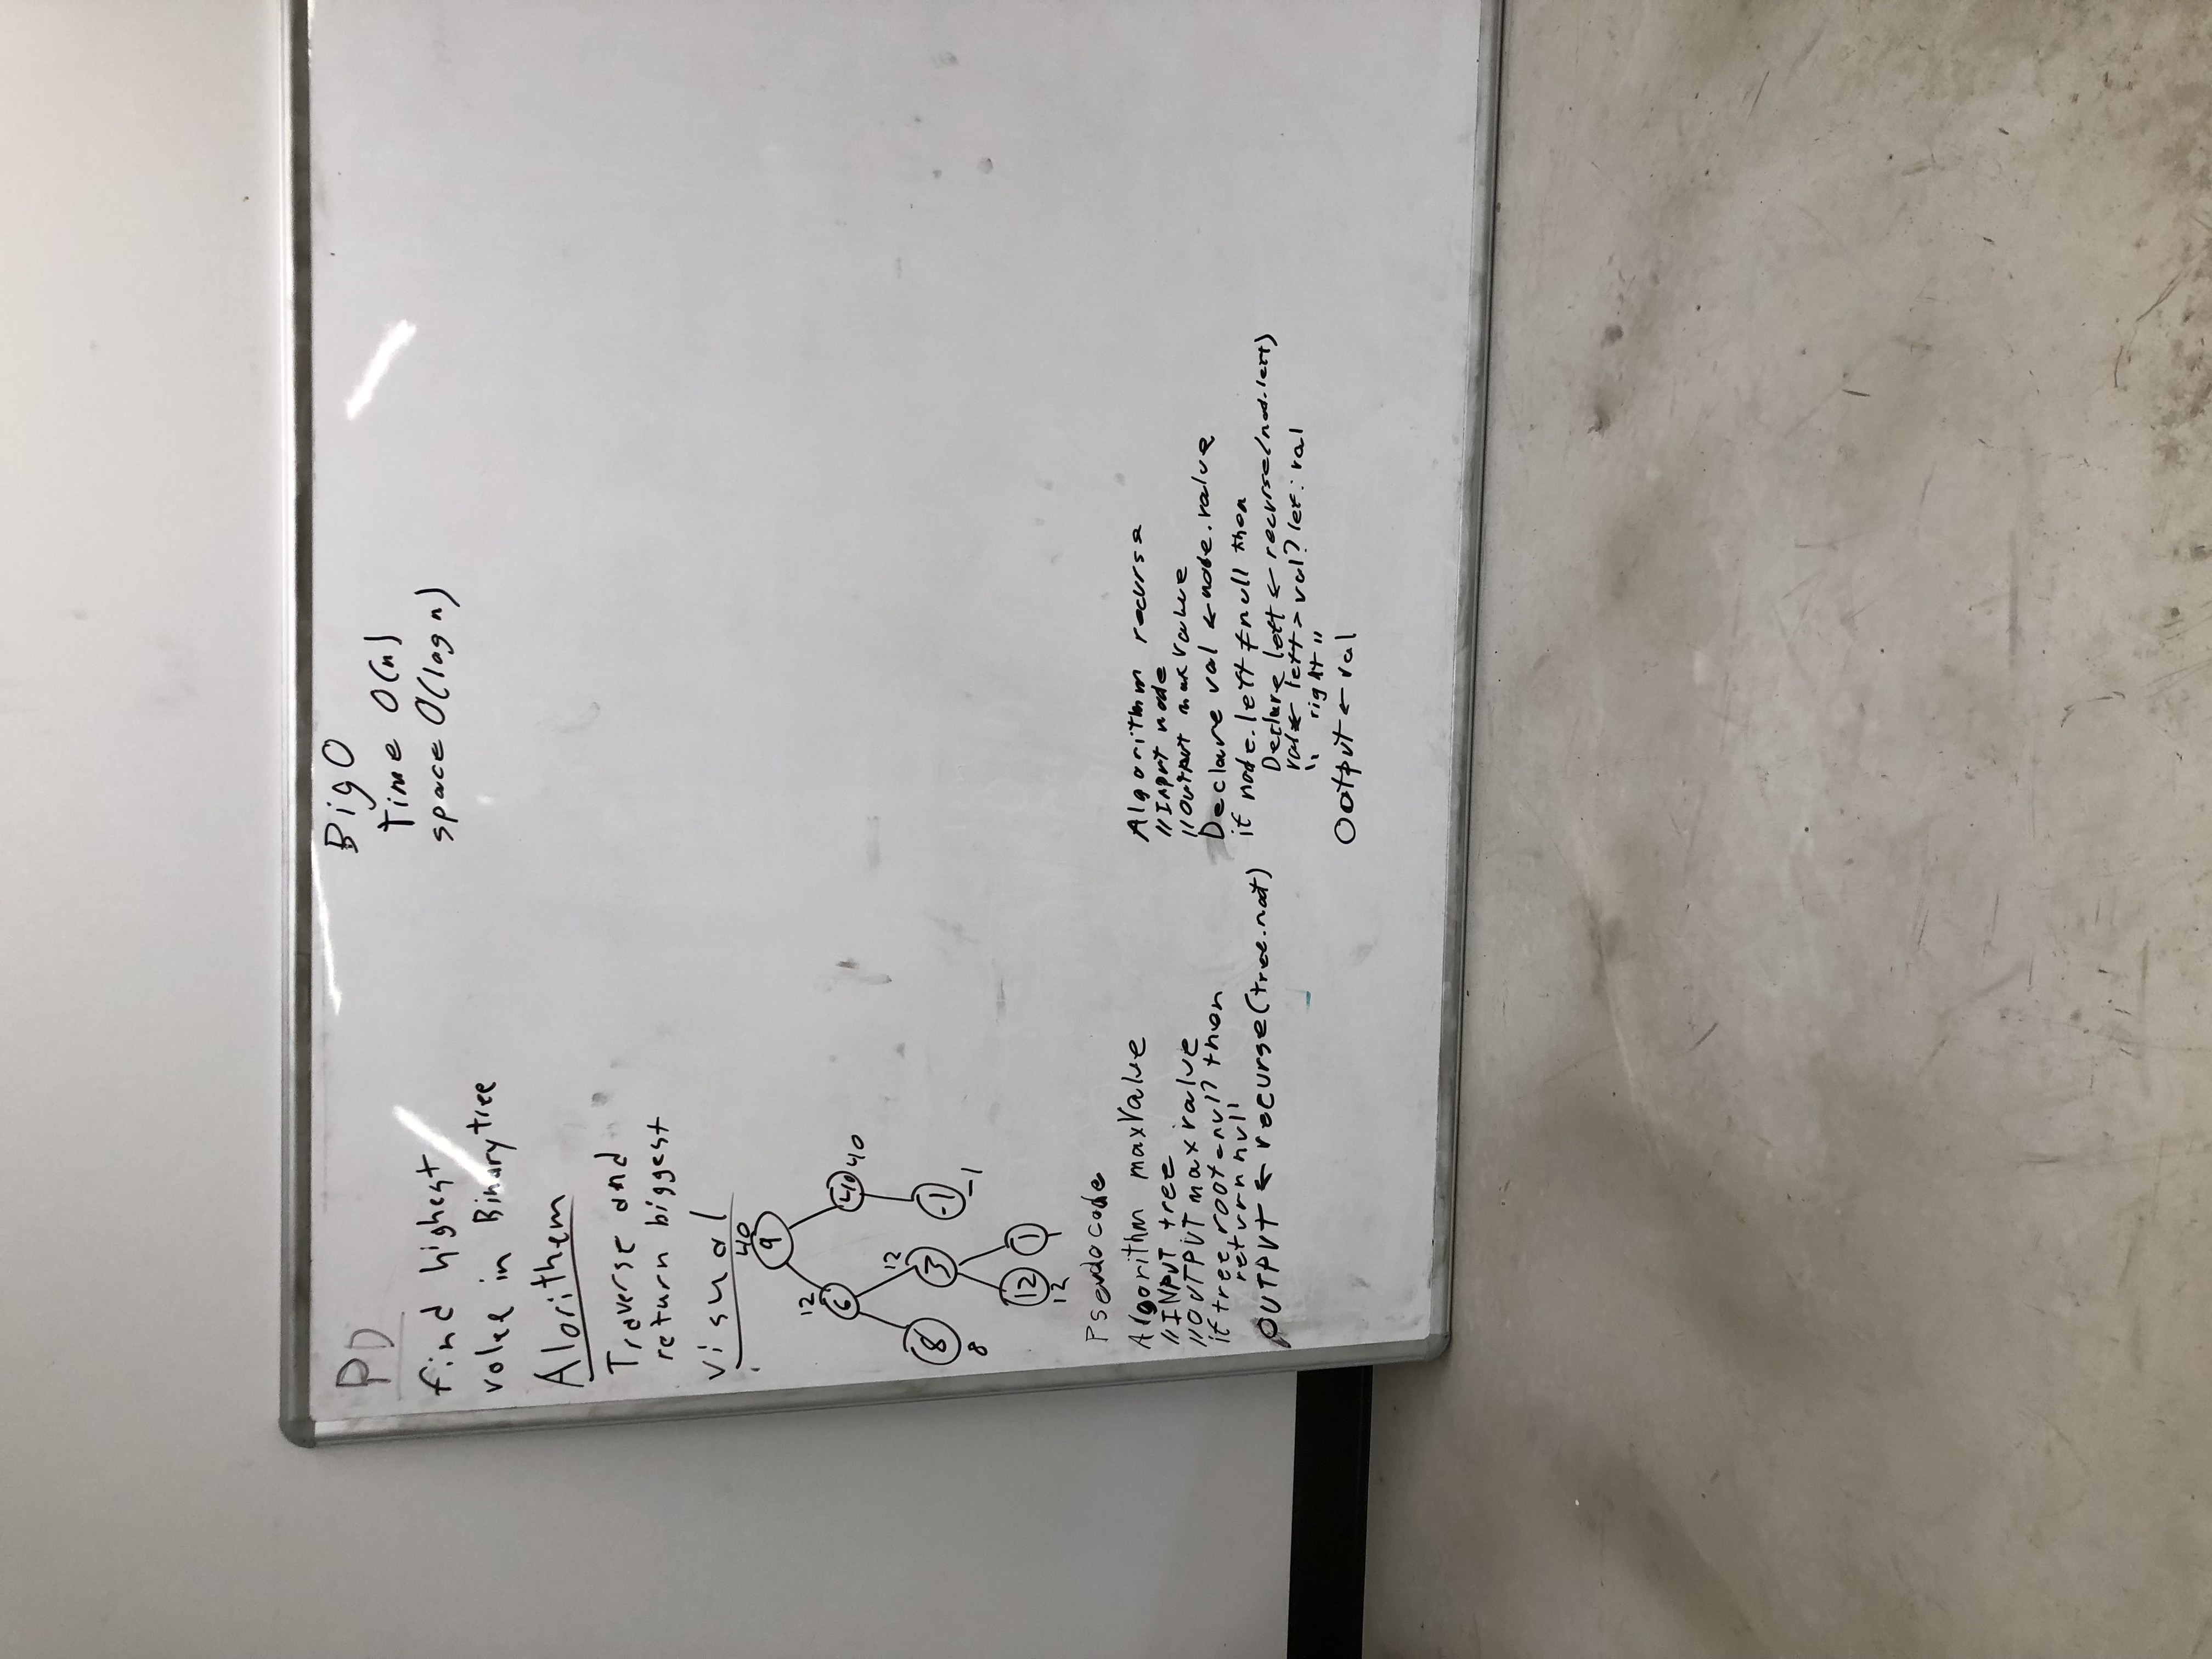 PD
find highest
value in Binary tree
Alorithem
Traverse and
return biggest
visual
40
9
12
6
40 40
12
8 3 -1
8 -1
12 1
12 1
Pseudocode
Algorithm maxValue
//INPUT tree
//OUTPUT max value
if tree.root = null then
return null
OUTPUT ← recurse(tree.root)
Big O
Time O(n)
space O(log n)
Algorithm recurse
//Input node
//OUTPUT max Value
Declare val ← node.value
if node.left ≠ null then
Declare left ← recurse(nod.left)
val ← left > val? lef: val
" right "
Output ← val